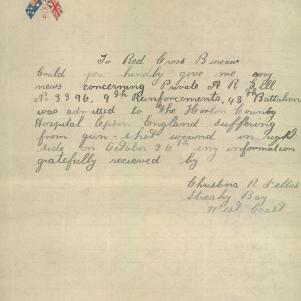 To Red Cross Bureau
Could you kindly give me any
news concerning Private A R Gell
No 3396, 9th Reinforcements, 48th Battalion
was admitted to the Horton County
Hospital Epson England suffering
from gun-shot wound in right
side on October 26th any information
gratefully recieved by
Christina R
Streaky Bay
West Coast